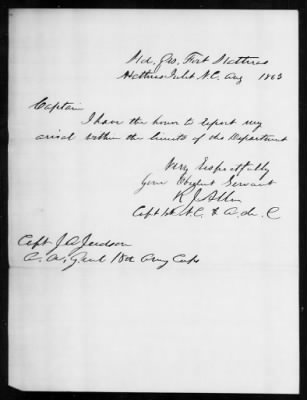 Hd. Qrs. Fort Hatteras
Hatteras Inlet N.C. Aug 1863
Captain
I have the honor to report my
arival within the limits of the Department
Very Respectfully
Your Obedient Servant
R J Allen
Capt 1st N.C. & A. de. C
Capt J A Judson
A. A. Genl 18th Army Corps